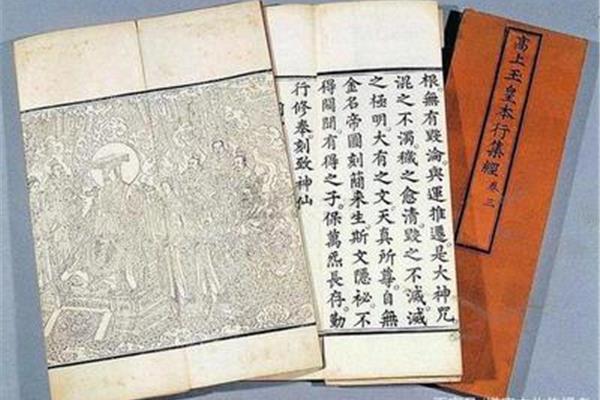 高上玉皇本行集經 卷三
根。無有毀淪。與運推遷。是大神咒
混之不濁。穢之愈清。毀之不滅。滅
之極明。大有之文。天真所尊。自無
金名帝圖。刻簡來生。斯文隱祕。不
得閱聞。有得之子。保萬炁長存。勤
行修奉。刻致神仙